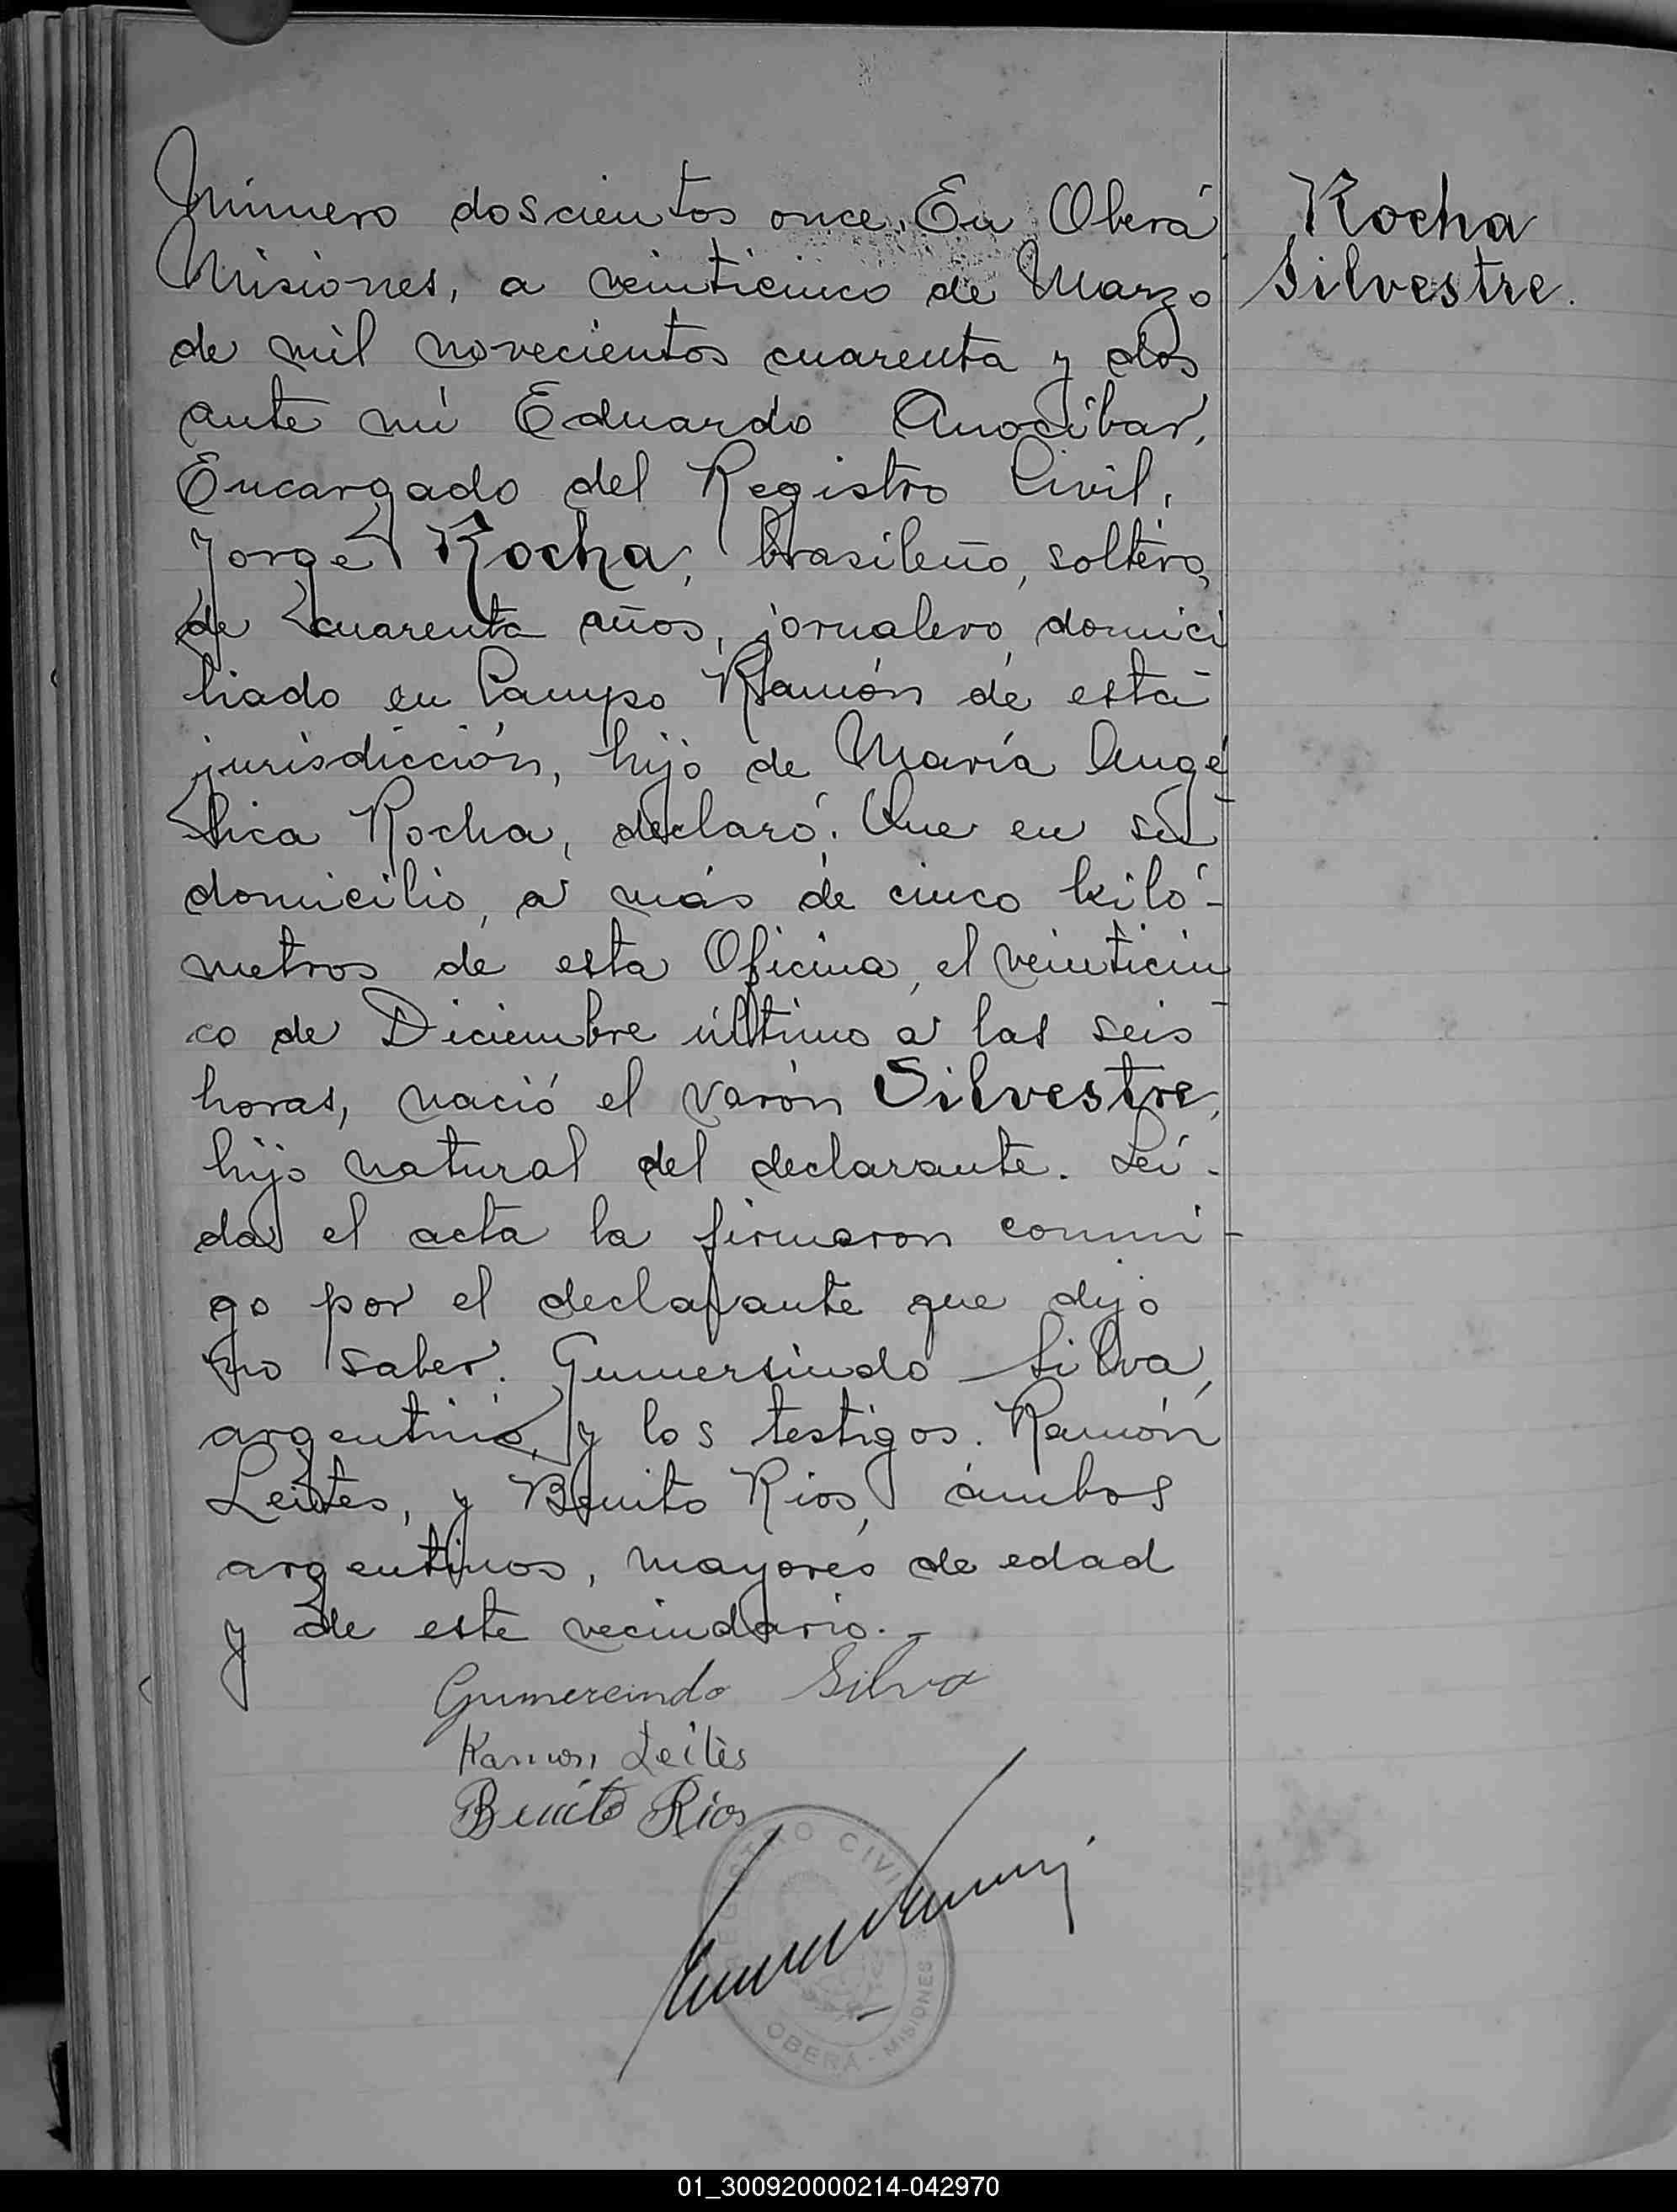 Número doscientos once. En Oberá
Misiones, a veinticinco de Marzo
de mil novecientos cuarenta y dos
ante mí Eduardo Anocíbar,
Encargado del Registro Civil,
Jorge Rocha, brasileño, soltero,
de cuarenta años, jornalero, domici
liado en Campo Ramón de esta
jurisdicción, hijo de María Angé
lica Rocha, declaró: Que en su
domicilio, a más de cinco kiló-
metros de esta Oficina, el veinticin
co de Diciembre último a las seis
horas, nació el varón Silvestre,
hijo natural del declarante. Leí-
da el acta la firmaron conmi-
go por el declarante que dijo
no saber. Gumersindo Silva,
argentino, y los testigos. Ramón
Leites, y Benito Rios, ambos
argentinos, mayores de edad
y de este vecindario.-
Rocha
Silvestre.
Gumercindo Silva
Ramon Leites
Benito Rios
REGISTRO CIVIL
OBERÁ - MISIONES
01_300920000214-042970